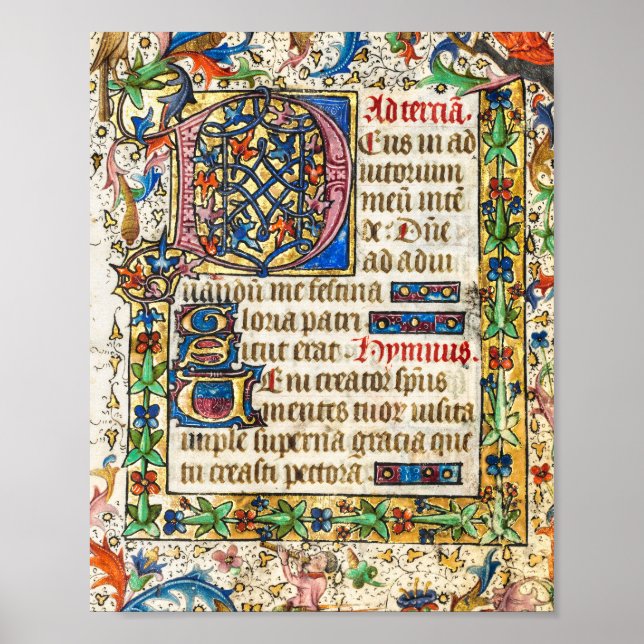 Ad terciā.
Deus in ad
iutorium
meū inte
de. Dn̄e
ad adiu
uandū me festina
Gloria patri
Sicut erat Hymnus.
Ueni creator sp̄us
mentes tuor uisita
imple superna gracia que
tu creasti pectora.